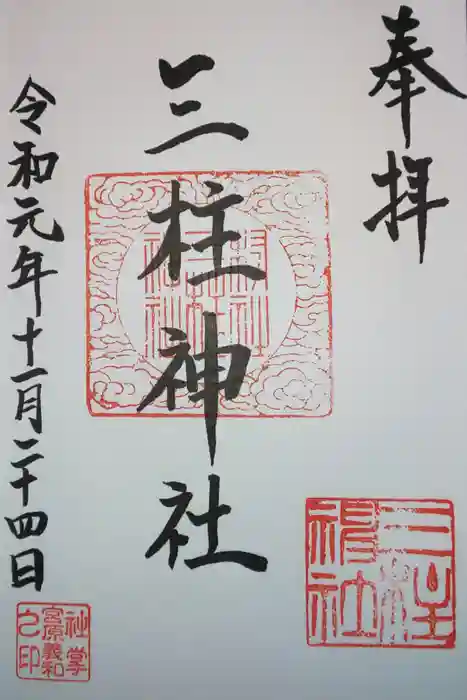 奉拝
三柱神社
令和元年十一月二十四日
三柱神社
社掌宮原義和之印